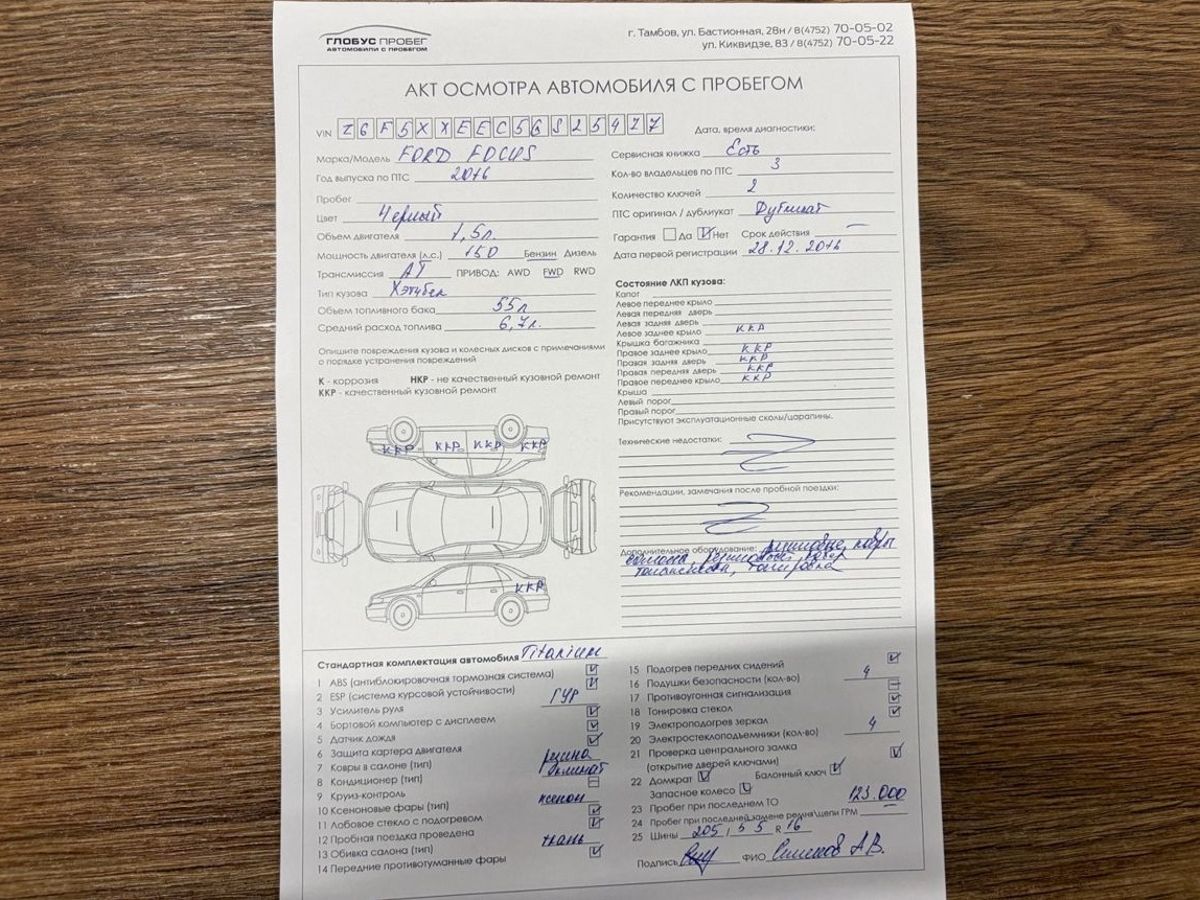 ГЛОБУС ПРОБЕГ
АВТОМОБИЛИ С ПРОБЕГОМ
г. Тамбов, ул. Бастионная, 28н / 8(4752) 70-05-02
ул. Киквидзе, 83 / 8(4752) 70-05-22
АКТ ОСМОТРА АВТОМОБИЛЯ С ПРОБЕГОМ
VIN Z6F5XXEEC5GS25477
Дата, время диагностики:
Марка/Модель FORD FOCUS
Год выпуска по ПТС 2016
Пробег
Цвет Черный
Объем двигателя 1,5л.
Мощность двигателя (л.с.) 150 Бензин Дизель
Трансмиссия АТ ПРИВОД: AWD FWD RWD
Тип кузова Хэтчбек
Объем топливного бака 55л
Средний расход топлива 6,7л.
Сервисная книжка Есть
Кол-во владельцев по ПТС 3
Количество ключей 2
ПТС оригинал / дубликат Дубликат
Гарантия Да Нет Срок действия —
Дата первой регистрации 28.12.2016
Опишите повреждения кузова и колесных дисков с примечаниями
о порядке устранения повреждений
К - коррозия НКР - не качественный кузовной ремонт
ККР - качественный кузовной ремонт
Состояние ЛКП кузова:
Капот
Левое переднее крыло
Левая передняя дверь
Левая задняя дверь
Левое заднее крыло ККР
Крышка багажника
Правое заднее крыло ККР
Правая задняя дверь ККР
Правая передняя дверь ККР
Правое переднее крыло ККР
Крыша
Левый порог
Правый порог
Присутствуют эксплуатационные сколы/царапины.
ККР ККР ККР ККР
ККР
Технические недостатки:
Рекомендации, замечания после пробной поездки:
Дополнительное оборудование:
тонировка
Стандартная комплектация автомобиля Titanium
1 ABS (антиблокировочная тормозная система)
2 ESP (система курсовой устойчивости)
3 Усилитель руля ГУР
4 Бортовой компьютер с дисплеем
5 Датчик дождя
6 Защита картера двигателя
7 Ковры в салоне (тип) резина
8 Кондиционер (тип) климат
9 Круиз-контроль
10 Ксеноновые фары (тип) ксенон
11 Лобовое стекло с подогревом
12 Пробная поездка проведена
13 Обивка салона (тип) ткань
14 Передние противотуманные фары
15 Подогрев передних сидений
16 Подушки безопасности (кол-во) 4
17 Противоугонная сигнализация
18 Тонировка стекол
19 Электроподогрев зеркал
20 Электростеклоподъемники (кол-во) 4
21 Проверка центрального замка
(открытие дверей ключами)
22 Домкрат Балонный ключ
Запасное колесо
23 Пробег при последнем ТО 123.000
24 Пробег при последней замене ремня\цепи ГРМ
25 Шины 205 / 55 R 16
Подпись ФИО А.В.